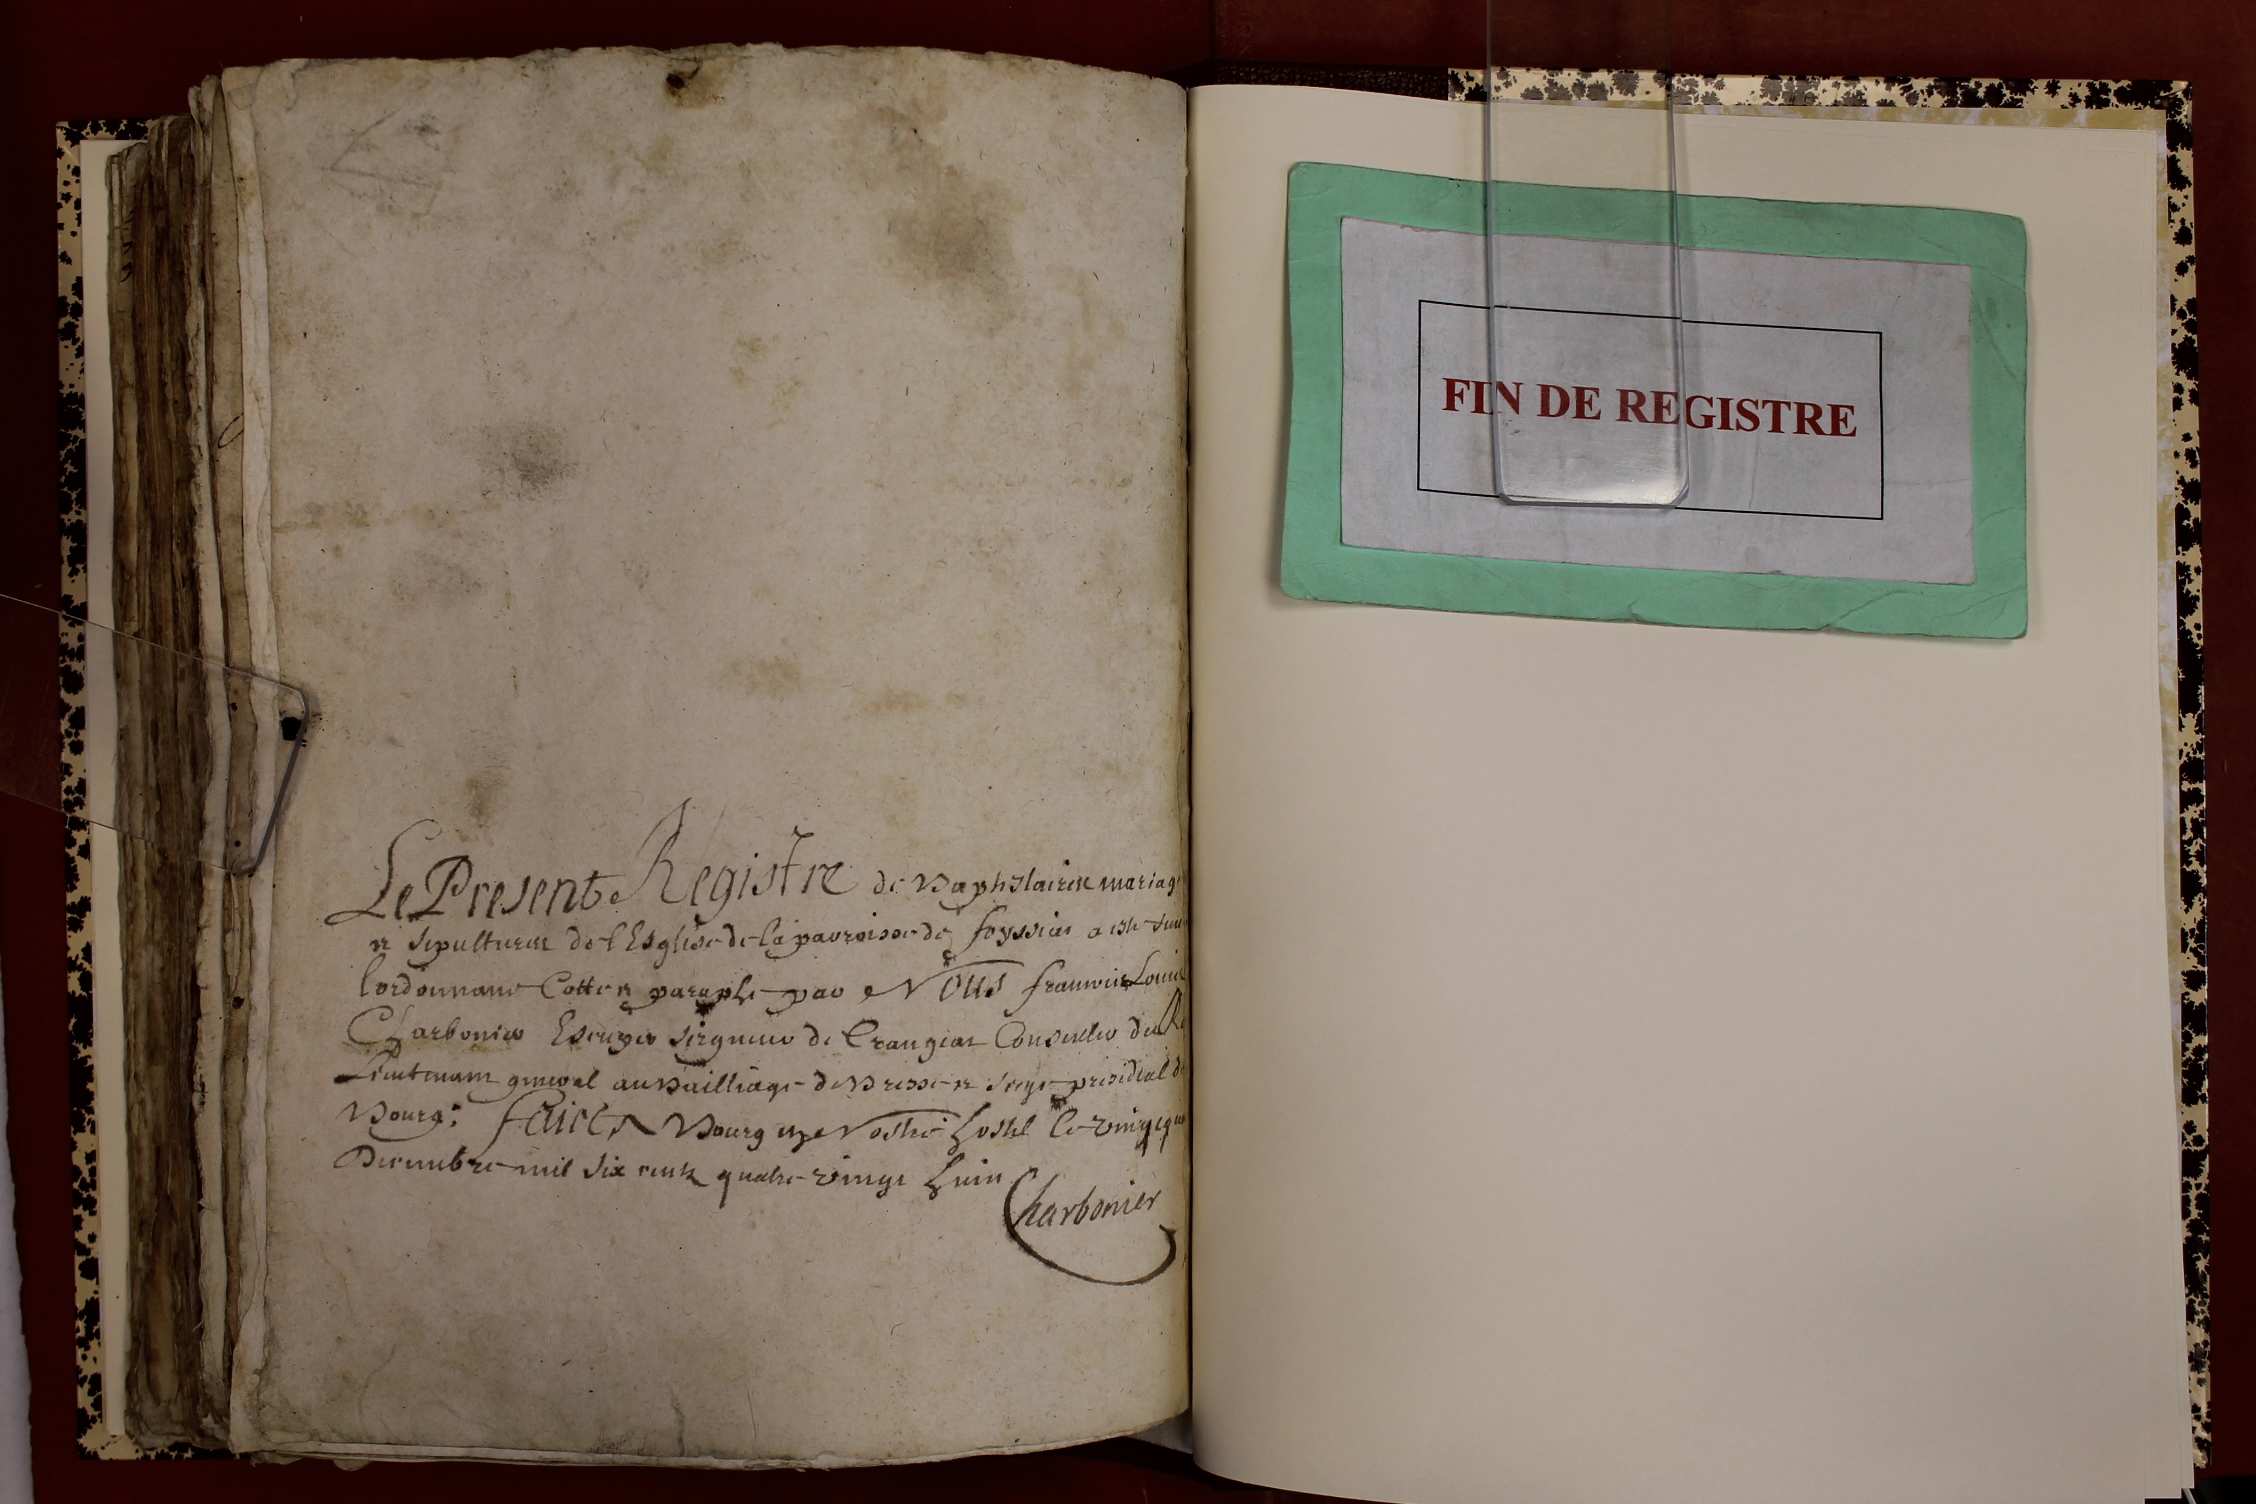 Le Present Registre de Baptistaires mariag
et sepultures de l'Esglise de la parroisse de foyssiat a esté
l'ordonnance Cotte et paraphe par Nous francois Louis
Charbonier Escuyer seigneur de Crangeat Conseiller du R
Lieutenant general au Bailliage de Bresse et siege presidial d
Bourg: faict a Bourg en Nostre hostel le
Decembre mil six cents quatre vingt huit
Charbonier
FIN DE REGISTRE